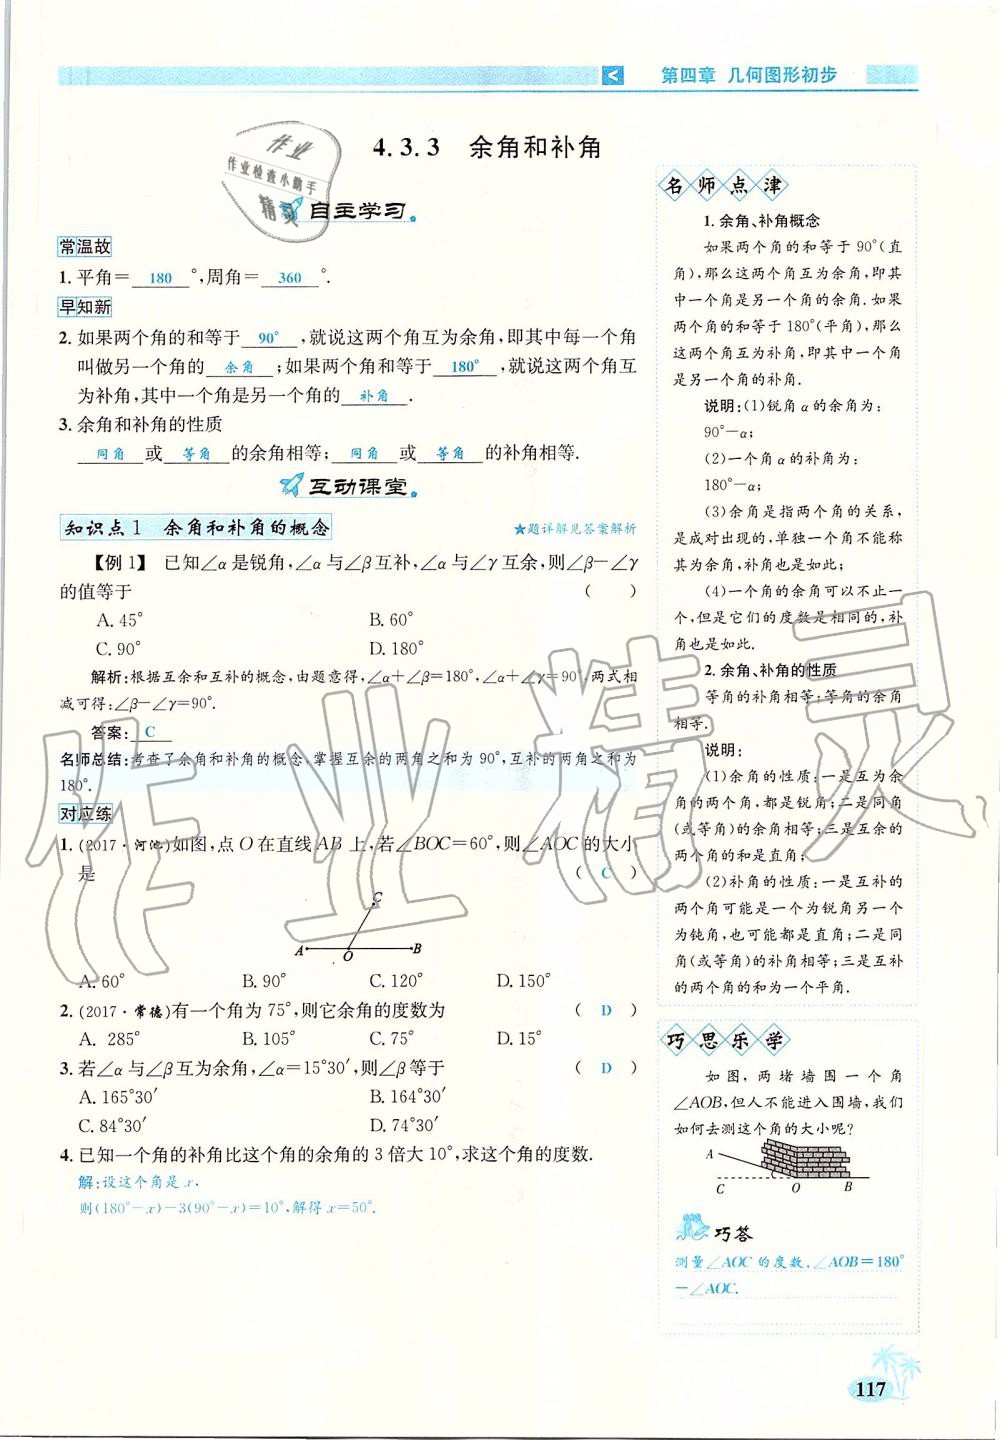 第四章 几何图形初步
4.3.3 余角和补角
作业
作业检查小助手
精灵
自主学习
常温故
1. 平角=180°,周角=360°.
早知新
2. 如果两个角的和等于90°,就说这两个角互为余角,即其中每一个角
叫做另一个角的余角;如果两个角和等于180°,就说这两个角互
为补角,其中一个角是另一个角的补角.
3. 余角和补角的性质
同角或等角的余角相等;同角或等角的补角相等.
互动课堂
知识点1 余角和补角的概念
★题详解见答案解析
【例1】 已知∠α是锐角,∠α与∠β互补,∠α与∠γ互余,则∠β-∠γ
的值等于 ( )
A. 45° B. 60°
C. 90° D. 180°
解析:根据互余和互补的概念,由题意得,∠α+∠β=180°,∠α+∠γ=90°.两式相
减可得:∠β-∠γ=90°.
答案: C
名师总结:考查了余角和补角的概念.掌握互余的两角之和为90°,互补的两角之和为
180°.
对应练
1. (2017·河池)如图,点O在直线AB上,若∠BOC=60°,则∠AOC的大小
是 ( C )
C
A O B
A. 60° B. 90° C. 120° D. 150°
2. (2017·常德)有一个角为75°,则它余角的度数为 ( D )
A. 285° B. 105° C. 75° D. 15°
3. 若∠α与∠β互为余角,∠α=15°30′,则∠β等于 ( D )
A. 165°30′ B. 164°30′
C. 84°30′ D. 74°30′
4. 已知一个角的补角比这个角的余角的3倍大10°,求这个角的度数.
解:设这个角是x.
则(180°-x)-3(90°-x)=10°,解得x=50°.
名师点津
1. 余角、补角概念
如果两个角的和等于90°(直
角),那么这两个角互为余角,即其
中一个角是另一个角的余角.如果
两个角的和等于180°(平角),那么
这两个角互为补角,即其中一个角
是另一个角的补角.
说明:(1)锐角α的余角为:
90°-α;
(2)一个角α的补角为:
180°-α;
(3)余角是指两个角的关系,
是成对出现的,单独一个角不能称
其为余角,补角也是如此;
(4)一个角的余角可以不止一
个,但是它们的度数是相同的,补
角也是如此.
2. 余角、补角的性质
等角的补角相等;等角的余角
相等.
说明:
(1)余角的性质:一是互为余
角的两个角,都是锐角;二是同角
(或等角)的余角相等;三是互余的
两个角的和是直角;
(2)补角的性质:一是互补的
两个角可能是一个为锐角另一个
为钝角,也可能都是直角;二是同
角(或等角)的补角相等;三是互补
的两个角的和为一个平角.
巧思乐学
如图,两堵墙围一个角
∠AOB,但人不能进入围墙,我们
如何去测这个角的大小呢?
A
C O B
巧答
测量∠AOC的度数,∠AOB=180°
-∠AOC.
117
作业精灵